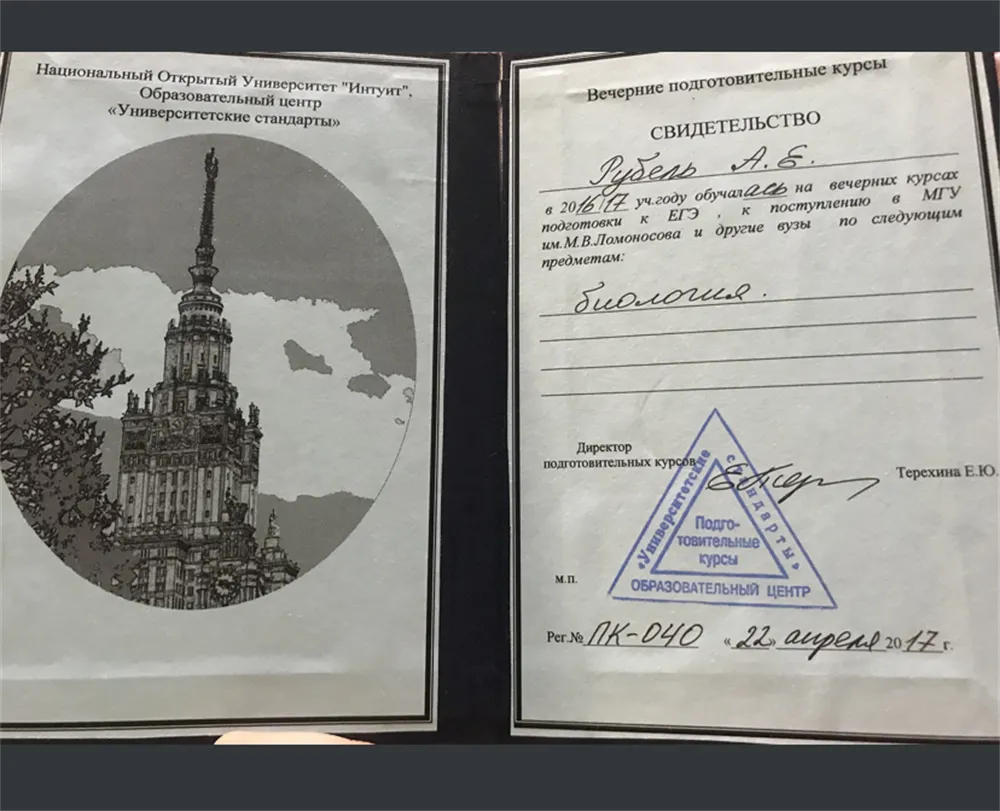 Национальный Открытый Университет "Интуит",
Образовательный центр
«Университетские стандарты»
Вечерние подготовительные курсы
СВИДЕТЕЛЬСТВО
Рубель А. Е.
в 2016/17 уч.году обучалась на вечерних курсах
подготовки к ЕГЭ , к поступлению в МГУ
им.М.В.Ломоносова и другие вузы по следующим
предметам:
биология.
Директор
подготовительных курсов
Терехина Е.Ю.
«Университетские стандарты»
Подго-
товительные
курсы
ОБРАЗОВАТЕЛЬНЫЙ ЦЕНТР
м.п.
Рег.№ ПК-040 «22» апреля 2017 г.